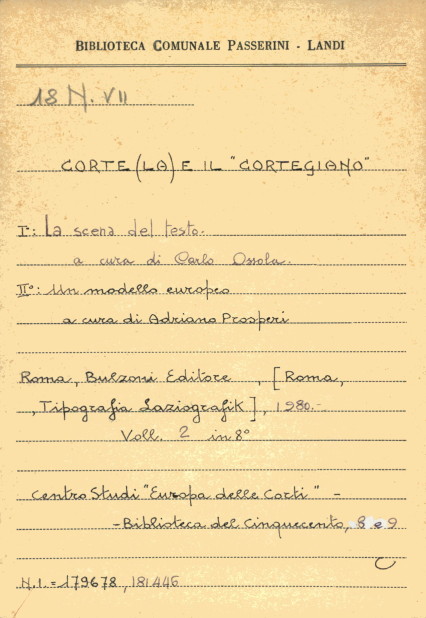 BIBLIOTECA COMUNALE PASSERINI - LANDI
18 N. VII
CORTE (LA) E IL "CORTEGIANO"
I°: La scena del testo.
a cura di Carlo Ossola.
II°: Un modello europeo
a cura di Adriano Prosperi
Roma, Bulzoni Editore , [Roma,
, Tipografia Laziografik], 1980.-
Voll. 2 in 8°
Centro Studi "Europa delle Corti" -
-Biblioteca del Cinquecento, 8 e 9
N.I. = 179678, 181446